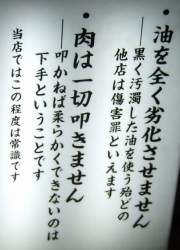 ・油を全く劣化させません
――黒く汚濁した油を使う殆どの
他店は傷害罪といえます
・肉は一切叩きません
――叩かねば柔らかくできないのは
下手ということです
当店ではこの程度は常識です